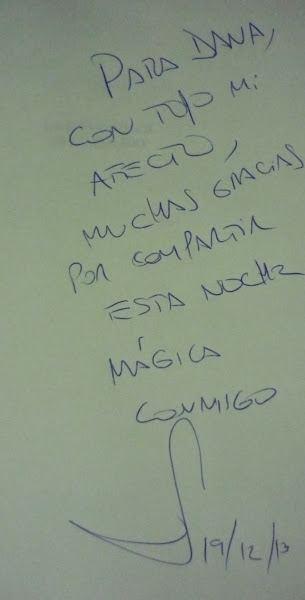 PARA DANA,
CON TODO MI
AFECTO,
MUCHAS GRACIAS
POR COMPARTIR
ESTA NOCHE
MÁGICA
CONMIGO
19/12/13